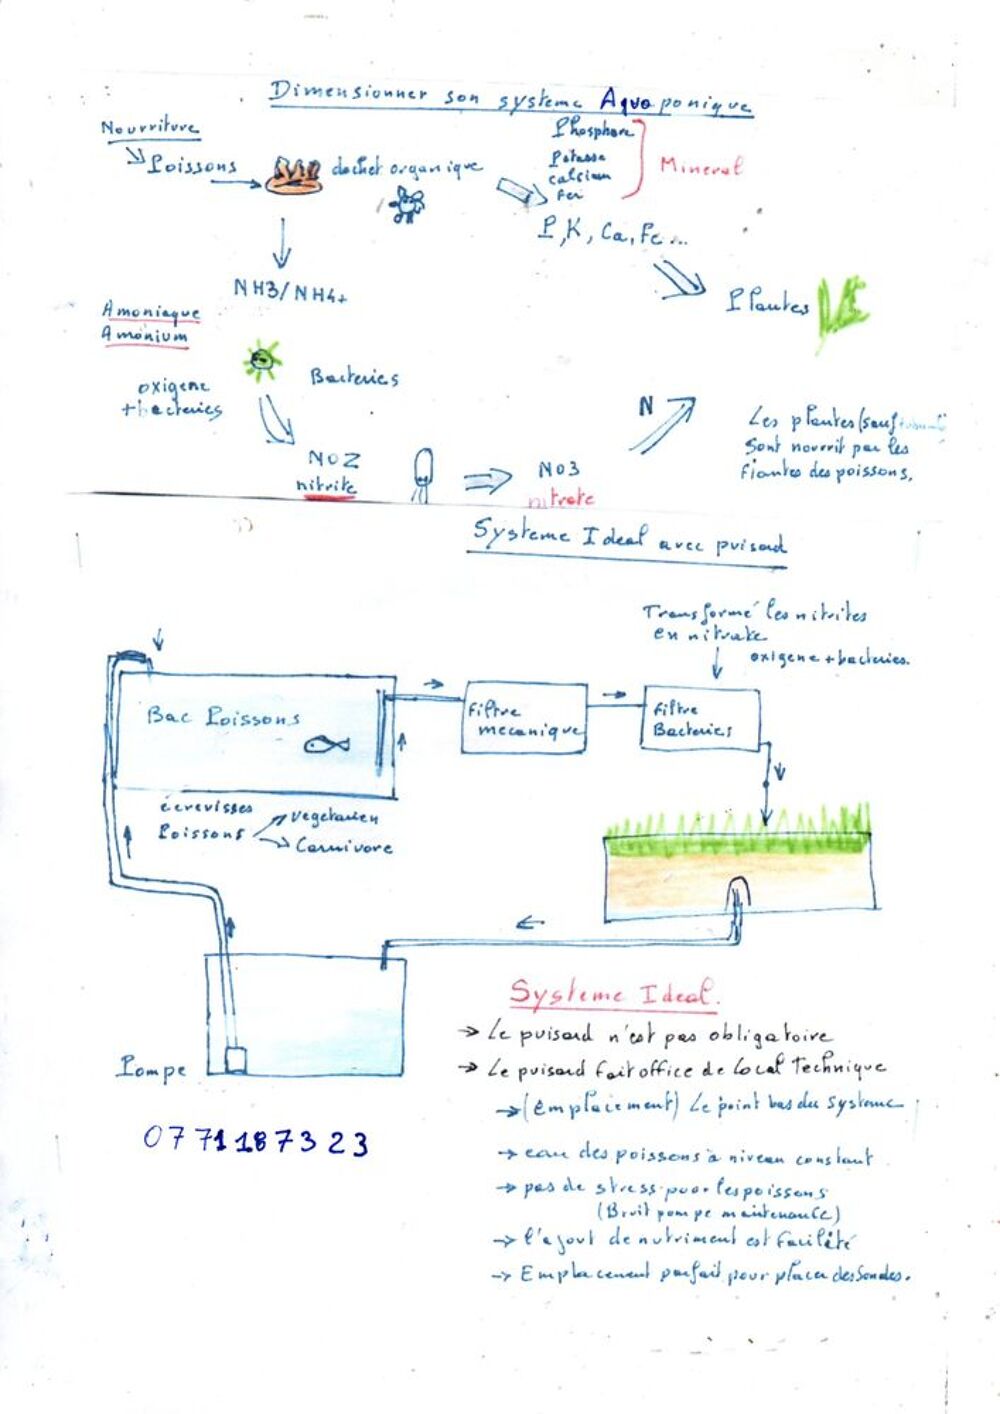 Dimensionner son systeme Aquaponique
Nourriture
Poissons
dechet organique
Phosphore
Potasse
calcium
Fer
Mineral
P, K, Ca, Fe...
Plantes
NH3/NH4+
Amoniaque
Amónium
Bacteries
oxigene
+bacteries
NO2
nitrite
NO3
nitrate
N
Les plantes (sauf
sont nourrit par les
fiantes des poissons.
Systeme Ideal avec puisard
Transformé les nitrites
en nitrate
oxigene + bacteries.
Bac Poissons
Filtre
mecanique
Filtre
Bacteries
écrevisses
Poissons
vegetarien
Carnivore
Pompe
0771187323
Systeme Ideal.
→ Le puisard n'est pas obligatoire
→ Le puisard fait office de Local Technique
→ (Emplacement) Le point bas du systeme
→ eau des poissons à niveau constant
→ pas de stress pour les poissons
(Bruit pompe maintenance)
→ l'ajout de nutriment est facilité
→ Emplacement parfait pour placer des sondes.